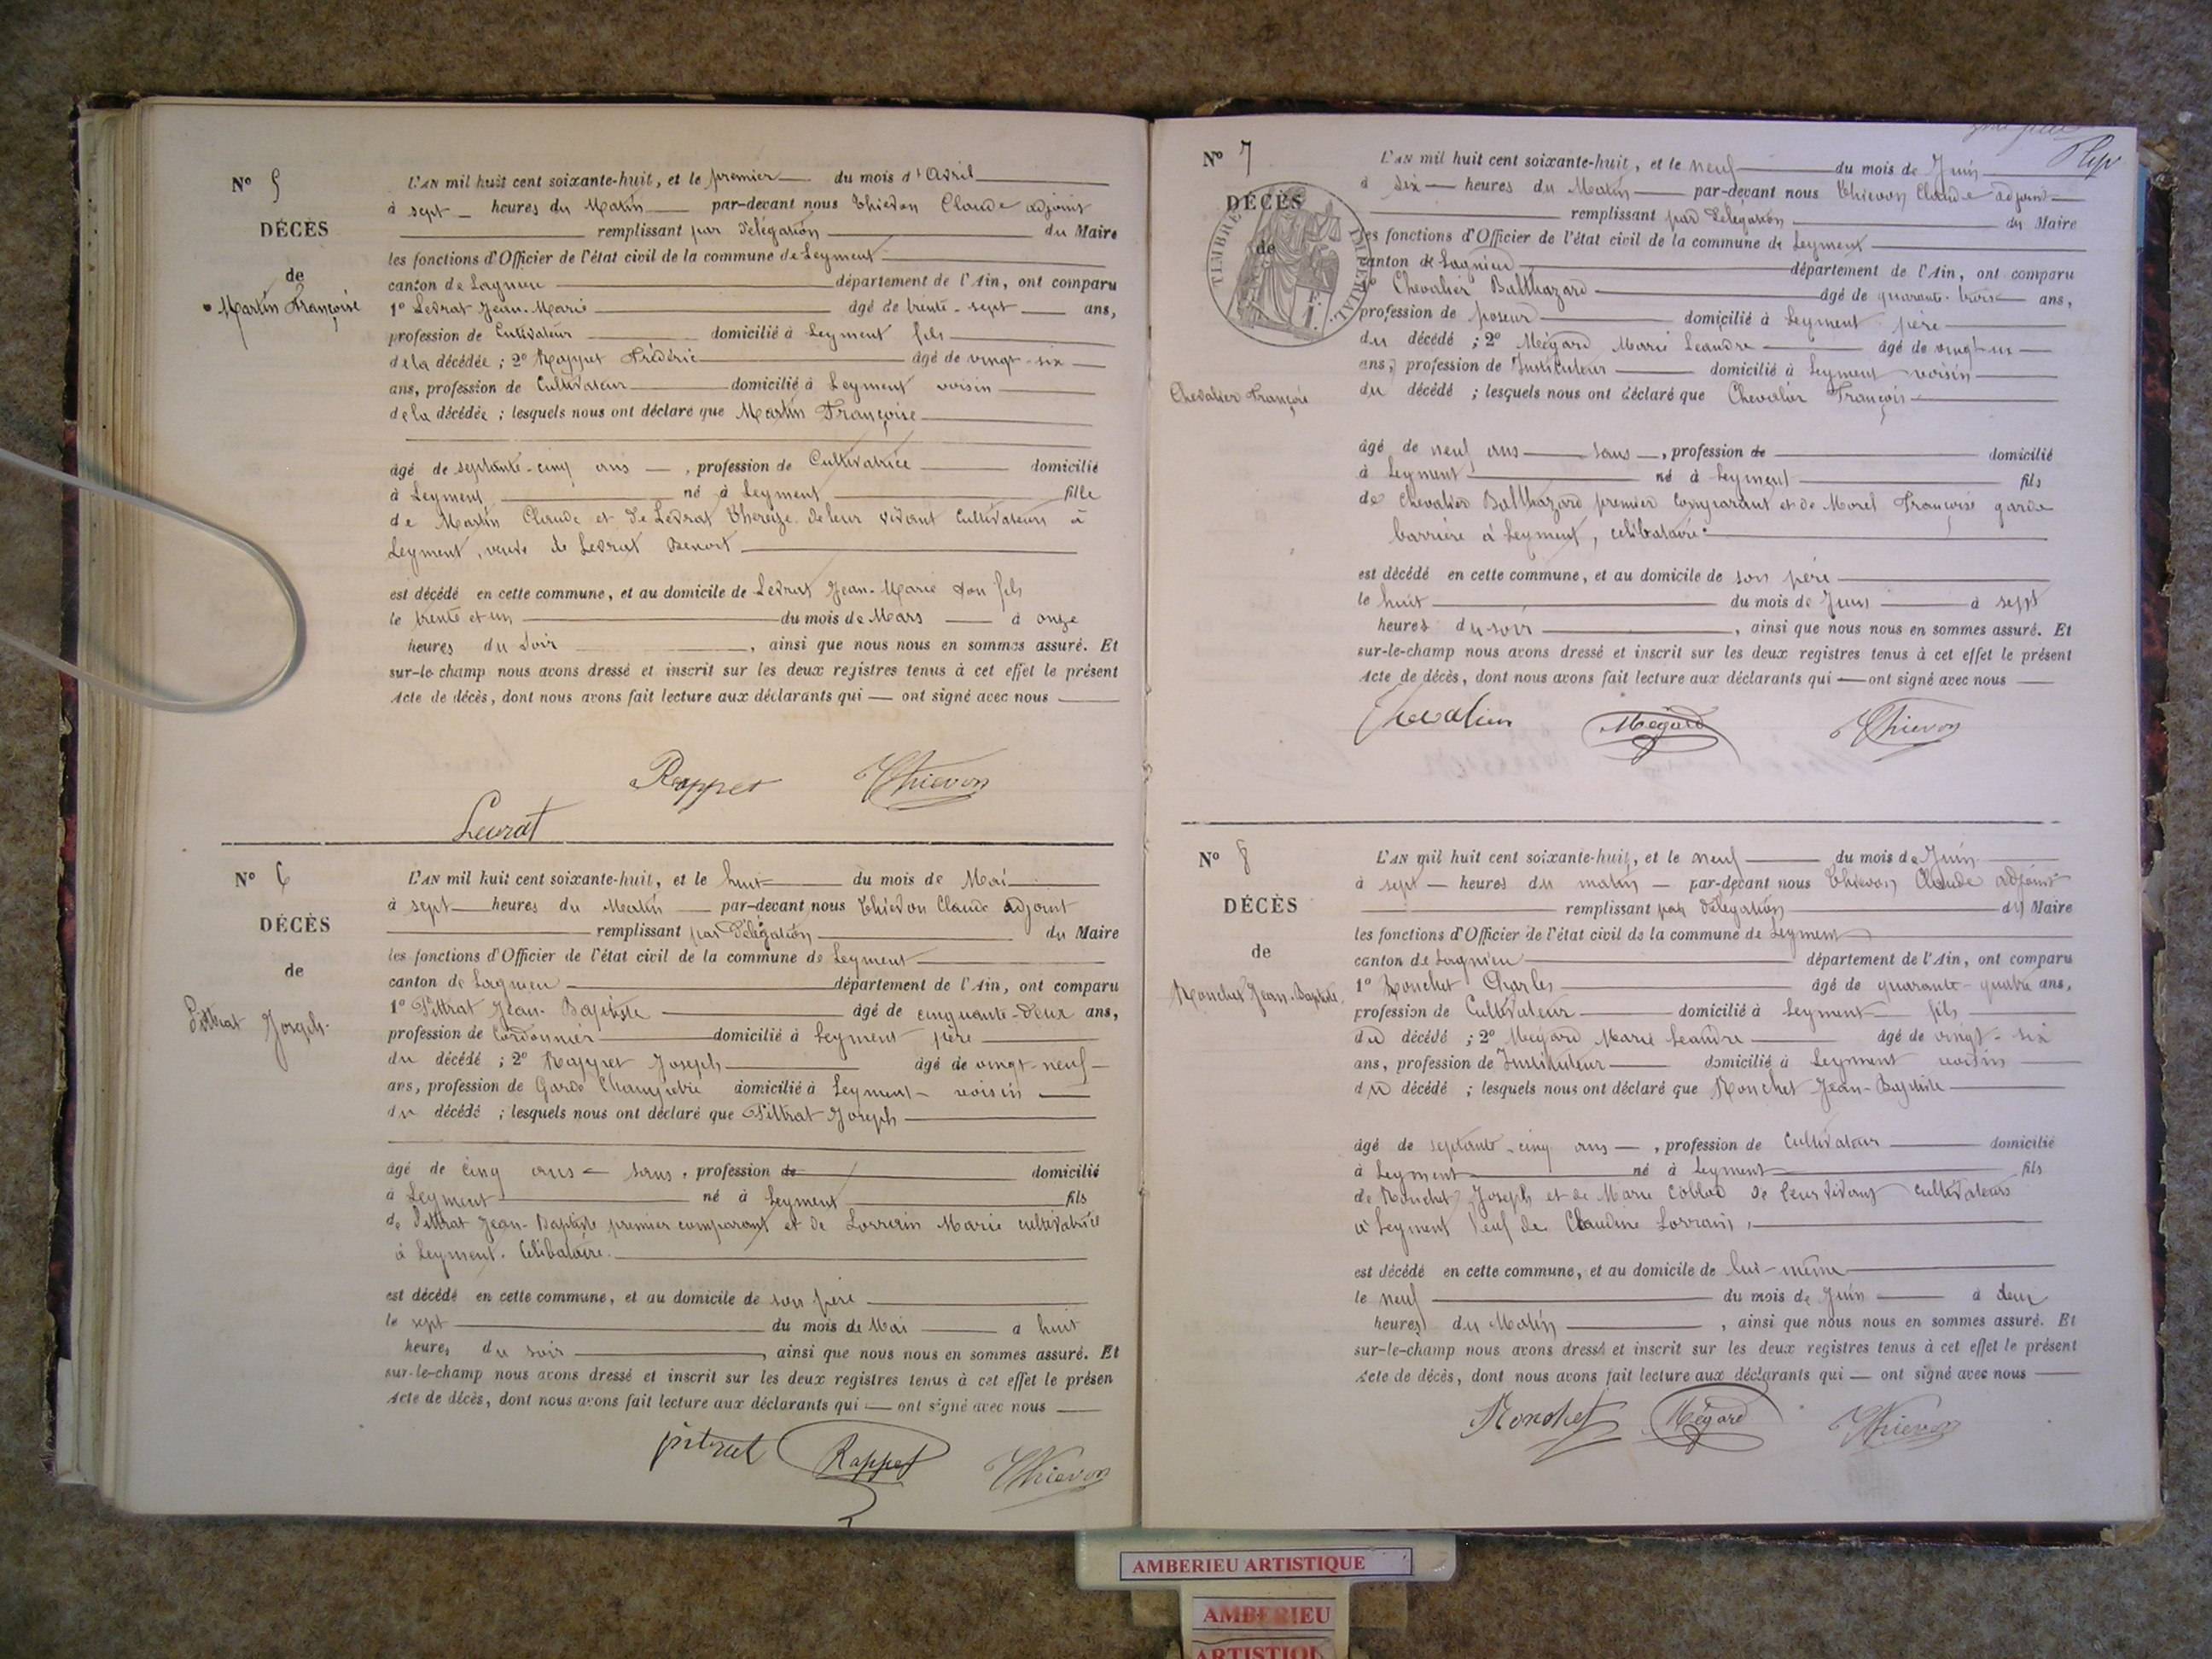 N° 5
DÉCÈS
de
Martin Françoise
L'AN mil huit cent soixante-huit, et le premier du mois d'Avril
à sept heures du Matin par-devant nous Thievon Claude adjoint
remplissant par délégation du Maire
les fonctions d'Officier de l'état civil de la commune de Leyment
canton de Lagnieu département de l'Ain, ont comparu
1° Levrat Jean-Marie âgé de trente-sept ans,
profession de Cultivateur domicilié à Leyment fils
de la décédée ; 2° Rappet Frédéric âgé de vingt-six
ans, profession de Cultivateur domicilié à Leyment voisin
de la décédée ; lesquels nous ont déclaré que Martin Françoise
âgé de septante-cinq ans , profession de Cultivatrice domicilié
à Leyment né à Leyment fille
de Martin Claude et de Levrat Thereze de leur vivant Cultivateurs à
Leyment, veuve de Levrat Benoit
est décédé en cette commune, et au domicile de Levrat Jean-Marie son fils
le trente et un du mois de Mars à onze
heures du Soir , ainsi que nous nous en sommes assuré. Et
sur-le-champ nous avons dressé et inscrit sur les deux registres tenus à cet effet le présent
Acte de décès, dont nous avons fait lecture aux déclarants qui ont signé avec nous
Rappet Thievon
Levrat
N° 6
DÉCÈS
de
Pittrat Joseph
L'AN mil huit cent soixante-huit, et le huit du mois de Mai
à sept heures du Matin par-devant nous Thievon Claude adjoint
remplissant par Délégation du Maire
les fonctions d'Officier de l'état civil de la commune de Leyment
canton de Lagnieu département de l'Ain, ont comparu
1° Pittrat Jean-Baptiste âgé de cinquante-deux ans,
profession de Cordonnier domicilié à Leyment père
du décédé ; 2° Rappet Joseph âgé de vingt-neuf
ans, profession de Garde Champêtre domicilié à Leyment voisin
du décédé ; lesquels nous ont déclaré que Pittrat Joseph
âgé de cinq ans sans , profession de domicilié
à Leyment né à Leyment fils
de Pittrat Jean-Baptiste premier comparant et de Lorrain Marie cultivatrice
à Leyment. Célibataire.
est décédé en cette commune, et au domicile de son père
le sept du mois de Mai à huit
heures du soir , ainsi que nous nous en sommes assuré. Et
sur-le-champ nous avons dressé et inscrit sur les deux registres tenus à cet effet le présen
Acte de décès, dont nous avons fait lecture aux déclarants qui ont signé avec nous
pitrat Rappet Thievon
N° 7
DÉCÈS
de
TIMBRE IMPERIAL
Chevalier François
L'AN mil huit cent soixante-huit, et le neuf du mois de Juin
à six heures du Matin par-devant nous Thievon Claude adjoint
remplissant par délégation du Maire
les fonctions d'Officier de l'état civil de la commune de Leyment
canton de Lagnieu département de l'Ain, ont comparu
1° Chevalier Balthazard âgé de quarante-trois ans,
profession de poseur domicilié à Leyment père
du décédé ; 2° Mégard Marie Leandre âgé de vingt-six
ans, profession de Instituteur domicilié à Leyment voisin
du décédé ; lesquels nous ont déclaré que Chevalier François
âgé de neuf ans sans , profession de domicilié
à Leyment né à Leyment fils
de Chevalier Balthazard premier comparant et de Morel Françoise garde
barrière à Leyment, célibataire
est décédé en cette commune, et au domicile de son père
le huit du mois de Juin à sept
heures du soir , ainsi que nous nous en sommes assuré. Et
sur-le-champ nous avons dressé et inscrit sur les deux registres tenus à cet effet le présent
Acte de décès, dont nous avons fait lecture aux déclarants qui ont signé avec nous
Chevalier Mégard Thievon
N° 8
DÉCÈS
de
Ronchet Jean-Baptiste
L'AN mil huit cent soixante-huit, et le neuf du mois de Juin
à sept heures du matin par-devant nous Thievon Claude adjoint
remplissant par délégation du Maire
les fonctions d'Officier de l'état civil de la commune de Leyment
canton de Lagnieu département de l'Ain, ont comparu
1° Ronchet Charles âgé de quarante-quatre ans,
profession de Cultivateur domicilié à Leyment fils
du décédé ; 2° Mégard Marie Leandre âgé de vingt-six
ans, profession de Instituteur domicilié à Leyment voisin
du décédé ; lesquels nous ont déclaré que Ronchet Jean-Baptiste
âgé de septante-cinq ans , profession de Cultivateur domicilié
à Leyment né à Leyment fils
de Ronchet Joseph et de Marie de leur vivant cultivateurs
à Leyment Veuf de Claudine Lorrain,
est décédé en cette commune, et au domicile de lui-même
le neuf du mois de Juin à deux
heures du Matin , ainsi que nous nous en sommes assuré. Et
sur-le-champ nous avons dressé et inscrit sur les deux registres tenus à cet effet le présent
Acte de décès, dont nous avons fait lecture aux déclarants qui ont signé avec nous
Ronchet Mégard Thievon
AMBERIEU ARTISTIQUE
AMBERIEU
ARTISTIQU